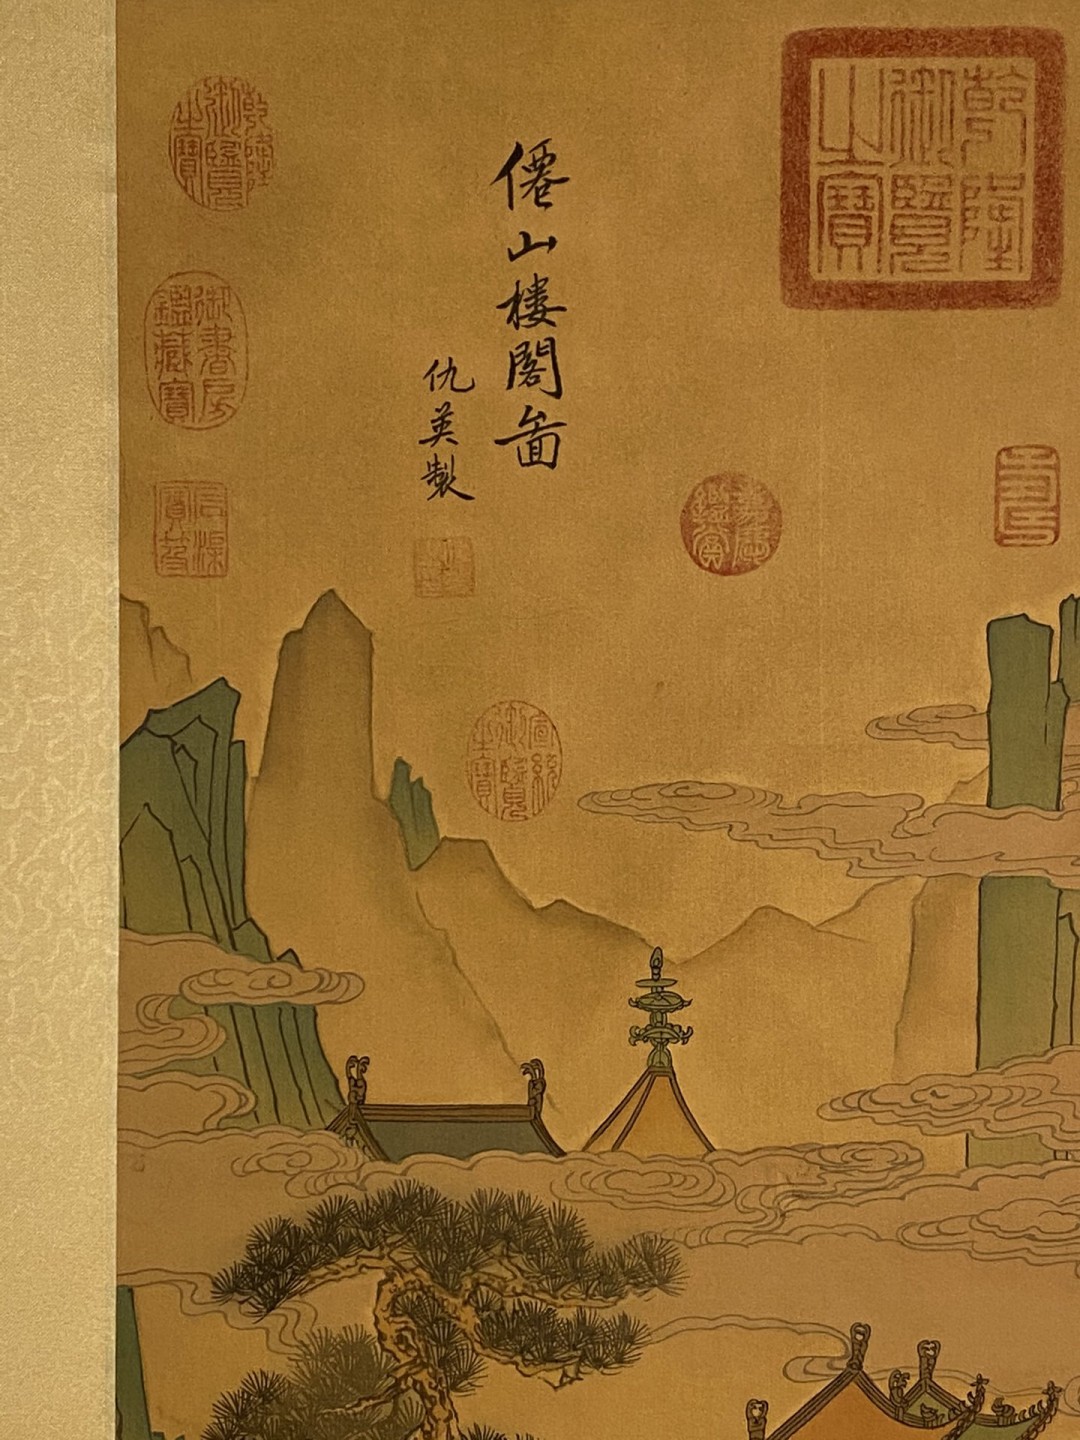 乾隆
御覽
之寶
嘉慶
鑑賞
宣統
御覽
之寶
僊山樓閣啚
仇英製
乾隆
御覽
之寶
御書房
鑑藏寶
石渠
寶笈